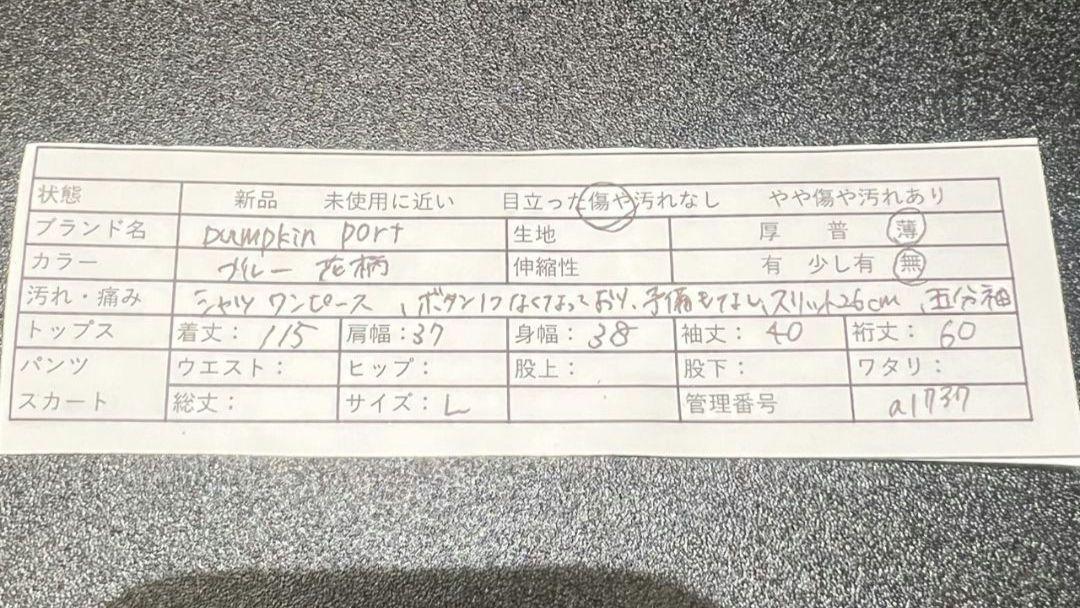 状態 新品 未使用に近い 目立った傷や汚れなし やや傷や汚れあり
ブランド名 pumpkin port 生地 厚 普 薄
カラー ブルー 花柄 伸縮性 有 少し有 無
汚れ・痛み シャツワンピース、ボタン1つなくなっており、予備もなし、スリット26cm、五分袖
トップス 着丈:115 肩幅:37 身幅:38 袖丈:40 裄丈:60
パンツ ウエスト: ヒップ: 股上: 股下: ワタリ:
スカート 総丈: サイズ:L 管理番号 a1737